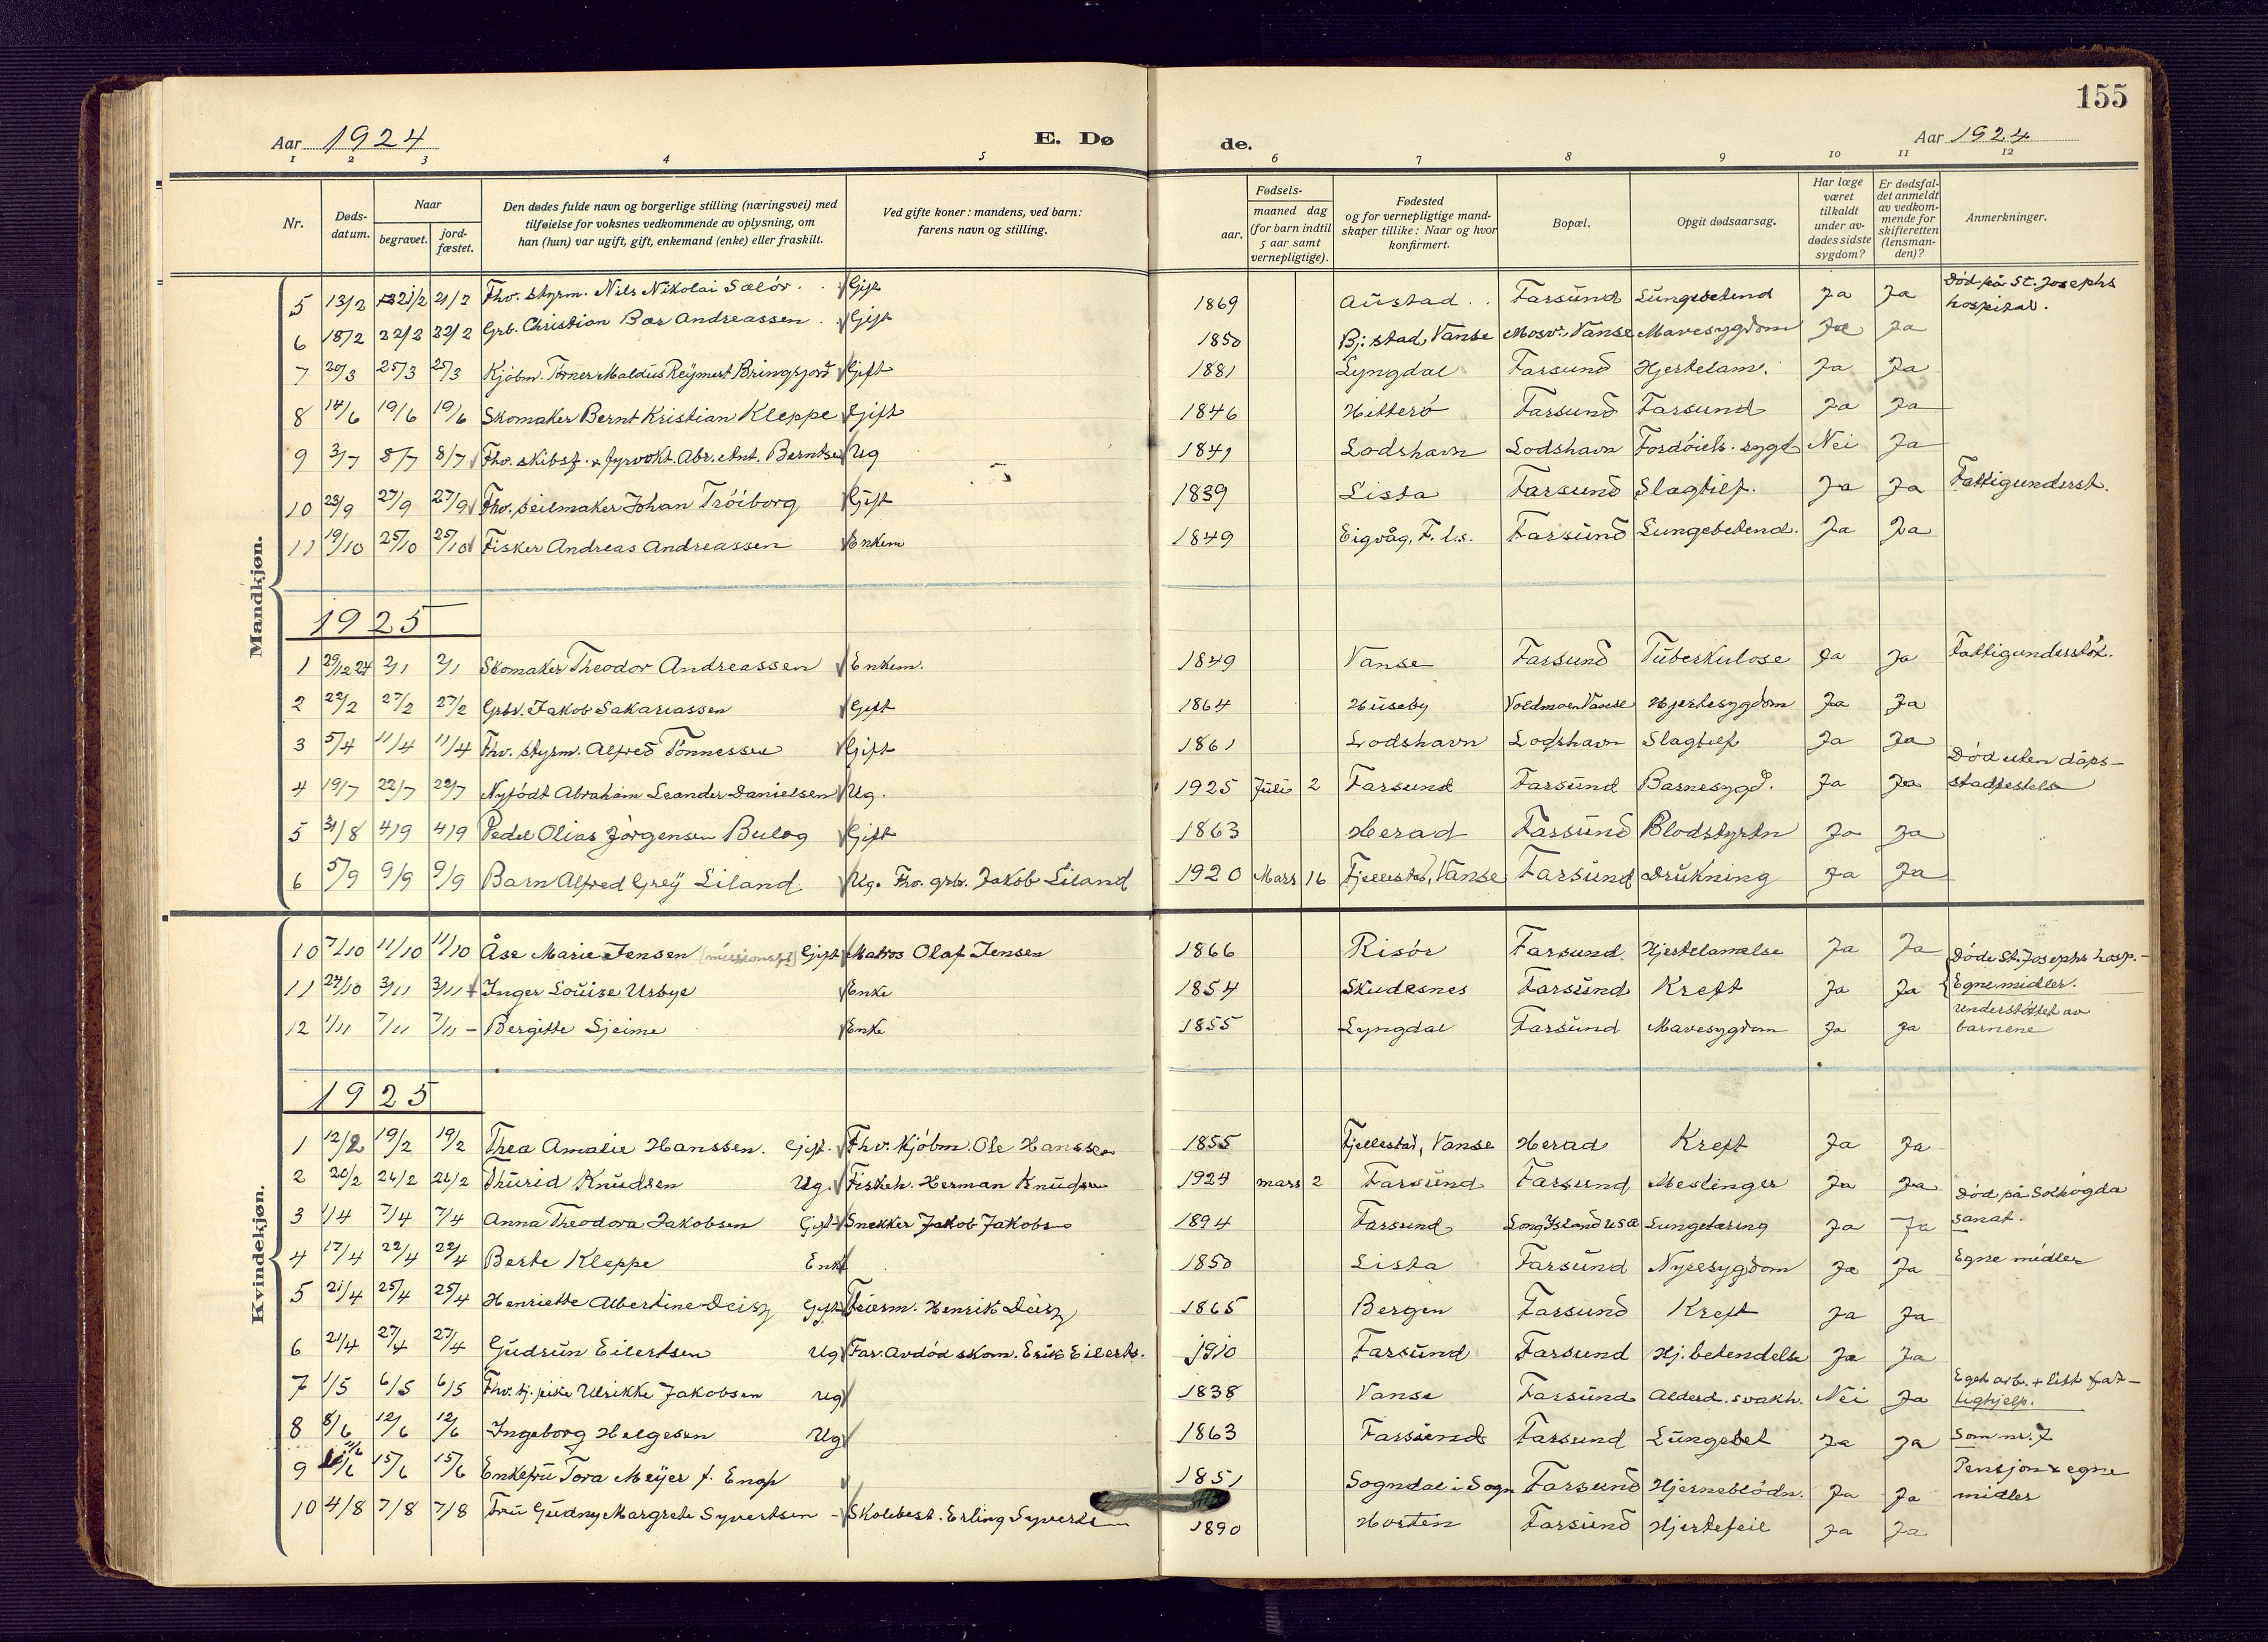 155
Aar 1924 E. Dø de. Aar 1924
1 2 3 4 5 6 7 8 9 10 11 12
Nr. Døds-datum. Naar begravet. jord-fæstet. Den dødes fulde navn og borgerlige stilling (næringsvei) med tilføielse for voksnes vedkommende av oplysning, om han (hun) var ugift, gift, enkemand (enke) eller fraskilt. Ved gifte koner: mandens, ved barn: farens navn og stilling. Fødsels- aar. maaned dag (for barn indtil 5 aar samt vernepligtige). Fødested og for vernepligtige mand-skaper tillike: Naar og hvor konfirmert. Bopæl. Opgit dødsaarsag. Har læge været tilkaldt under av-dødes sidste sygdom? Er dødsfal-det anmeldt av vedkom-mende for skifteretten (lensman-den)? Anmerkninger.
Mandkjøn.
5 13/2 21/2 21/2 Fhv. styrm. Nils Nikolai Salór. Gift 1869 Austad. Farsund Lungebetend Ja Ja Død på St. Josephs hospital.
6 18/2 22/2 22/2 Grb. Christian Bar Andreassen Gift 1850 Bj:stad, Vanse Mosv:, Vanse Mavesygdom Ja Ja
7 20/3 25/3 25/3 Kjøbm. Tørner Maldus Reymert Bringsjord Gift 1881 Lyngdal Farsund Hjertelam. Ja Ja
8 14/6 19/6 19/6 Skomaker Bernt Kristian Kleppe Gift 1846 Hitterö Farsund Farsund Ja Ja
9 3/7 8/7 8/7 Fhv. skibsf. & fyrvokt. Abr. Ant. Berntsen Ug 1841 Lodshavn Lodshavn Fordóiels. sygd Nei Ja
10 23/9 27/9 27/9 Fhv. seilmaker Johan Tróiborg Gift 1839 Lista Farsund Slagtilf. Ja Ja Fattigunderst.
11 19/10 25/10 25/10 Fisker Andreas Andreassen Enkem 1849 Eigvåg, F. l.s. Farsund Lungebetend. Ja Ja
1925
1 29/12 24 2/1 2/1 Skomaker Theodor Andreassen Enkem. 1849 Vanse Farsund Tuberkulose Ja Ja Fattigunderstöt.
2 22/2 27/2 27/2 Grbr. Jakob Sakariassen Gift 1864 Huseby Voldmoen Vanse Hjertesygdom Ja Ja
3 5/4 11/4 11/4 Fhv. styrm. Alfred Tönnessen Gift 1861 Lodshavn Lodshavn Slagtilf Ja Ja
4 19/7 22/7 22/7 Nyfödt Abraham Leander Danielsen Ug. 1925 Juli 2 Farsund Farsund Barnesygd. Ja Ja Død uten dåps-stadfestelse
5 31/8 4/9 4/9 Pedel Olias Jörgensen Bulog Gift 1863 Herad Farsund Blodstyrtn Ja Ja
6 5/9 9/9 9/9 Barn Alfred Grey Liland Ug. Fhv. grbr. Jakob Liland 1920 Mars 16 Fjellestad, Vanse Farsund Drukning Ja Ja
Kvindekjøn.
10 7/10 11/10 11/10 Åse Marie Jensen Gift Matros Olaf Jensen 1866 Risör Farsund Hjertelamelse Ja Ja Döde St. Josephs hosp.-
11 27/10 3/11 3/11 Inger Louise Urbye Enke 1854 Skudesnes Farsund Kreft Ja Ja Egne midler.
12 1/11 7/11 7/11 - Bergitte Ljeime Enke 1855 Lyngdal Farsund Mavesygdom Ja Ja Understöttet av barnene
1925
1 12/2 19/2 19/2 Thea Amalie Hanssen. Gift. Fhv. Kjóbm. Ole Hanssen 1855 Fjellestad, Vanse Herad Kreft Ja Ja
2 20/2 26/2 26/2 Thurid Knudsen Ug. Fiskeh. Herman Knudsen 1924 mars 2 Farsund Farsund Meslinger Ja Ja
3 1/4 7/4 7/4 Anna Theodora Jakobsen Gift Snekker Jakob Jakobsen 1894 Farsund Long Island USA Lungetæring Ja Ja Död på Solhögda sanat.
4 17/4 22/4 22/4 Berte Kleppe Enke 1850 Lista Farsund Nyresygdom Ja Ja Egne midler
5 21/4 25/4 25/4 Henriette Albertine Deisz Gift Feierm. Henrik Deisz 1865 Bergen Farsund Kreft Ja Ja
6 21/4 27/4 27/4 Gudrun Eilertsen Ug Far: Avdöd skom. Erik Eilerts. 1910 Farsund Farsund Hj. betendelse Ja Ja
7 1/5 6/5 6/5 Fhv. tj. pike Ulrikke Jakobsen Ug 1838 Vanse Farsund Alderd. svakh. Nei Ja Eget arb. + litt fat-tighjelp.
8 8/6 12/6 12/6 Ingeborg Helgesen Ug 1863 Farsund Farsund Lungebet Ja Ja Som nr. 7
9 11/6 15/6 15/6 Enkefru Tora Meyer f. Engh 1851 Sogndal i Sogn Farsund Hjerneblödn. Ja Ja Pensjon & egne midler
10 4/8 7/8 7/8 Fru Gudny Margrete Syvertsen - Skolebest. Erling Syvertsen 1890 Horten Farsund Hjertefeil Ja Ja